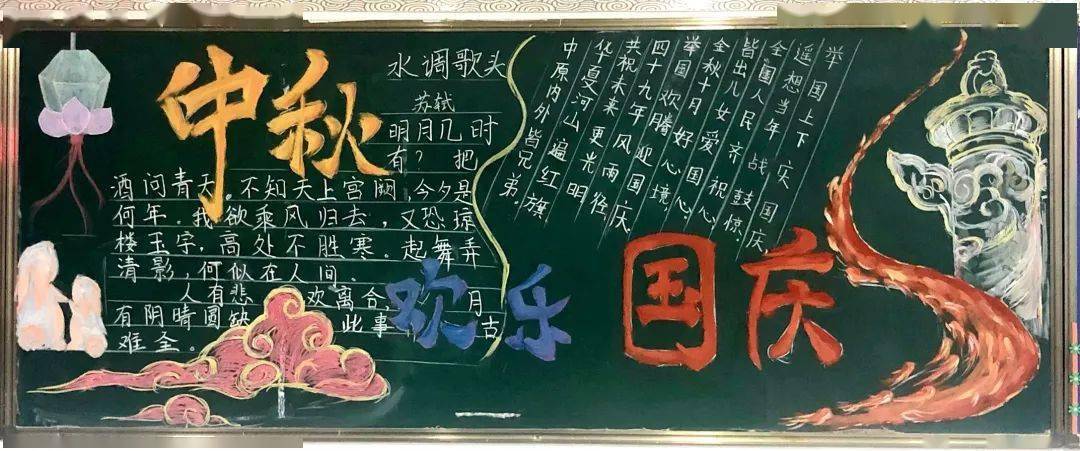 中秋
水调歌头
苏轼
明月几时
有？把
酒问青天。不知天上宫阙，今夕是
何年。我欲乘风归去，又恐琼
楼玉宇，高处不胜寒。起舞弄
清影，何似在人间。
人有悲欢离合，月
有阴晴圆缺此事古
难全。
举国上下庆国庆，
遥想当年战鼓惊。
全国人民齐祝心，
皆出儿女爱国心。
金秋十月好心境，
举国欢腾迎国庆。
四十九年风雨往，
共祝未来更光明。
华夏河山遍红旗，
中原内外皆兄弟。
欢乐
国庆